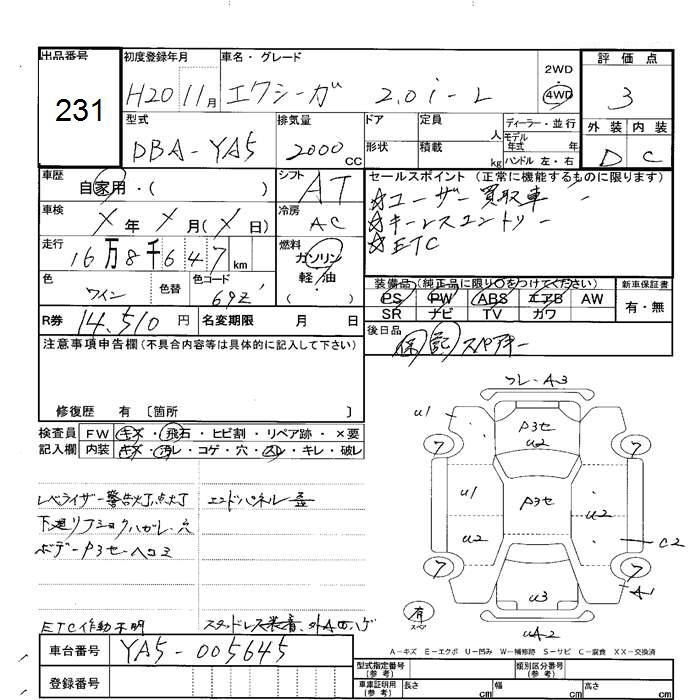 出品番号
231
初度登録年月
H20 11月
車名・グレード
エクシーガ 2.0i-L
2WD
・
4WD
評価点
3
型式
DBA-YA5
排気量
2000 CC
ドア
形状
定員 人
積載 kg
ディーラー・並行
モデル年式 年
ハンドル 左・右
外装 内装
D C
車歴
自家用・( )
シフト
AT
セールスポイント (正常に機能するものに限ります)
☆ユーザー買取車
☆キーレスエントリー
☆ETC
車検
X年 X月(X日)
冷房
AC
走行
16万8千647km
燃料
ガソリン
軽・油
( )
色
ワイン
色替
色コード
69Z
装備品(純正品に限り○をつけてください)
PS PW ABS エアB AW
SR ナビ TV カワ
新車保証書
有・無
R券 14,510円
名変期限 月 日
後日品
保 記 スペアキー
注意事項申告欄(不具合内容等は具体的に記入して下さい)
修復歴 有〔箇所 〕
検査員記入欄
FW キズ・飛石・ヒビ割・リペア跡・×要
内装 キズ・汚レ・コゲ・穴・スレ・キレ・破レ
レベライザー警告灯点灯
エンドパネル歪
下廻リフショクハガレ、穴
ボデーP3セーヘコミ
ETC作動不明
スタッドレス装着、
フレ-A3
u1
P3セ
u2
7
7
u1
P3セ
u2
u2
C2
7
7
A1
u3
uA2
有
スペア
A-キズ E-エクボ U-凹み W-補修跡 S-サビ C-腐食 XX-交換済
車台番号
YA5-005645
登録番号
型式指定番号(参考)
類別区分番号(参考)
車庫証明用(参考)
長さ cm
幅 cm
高さ cm